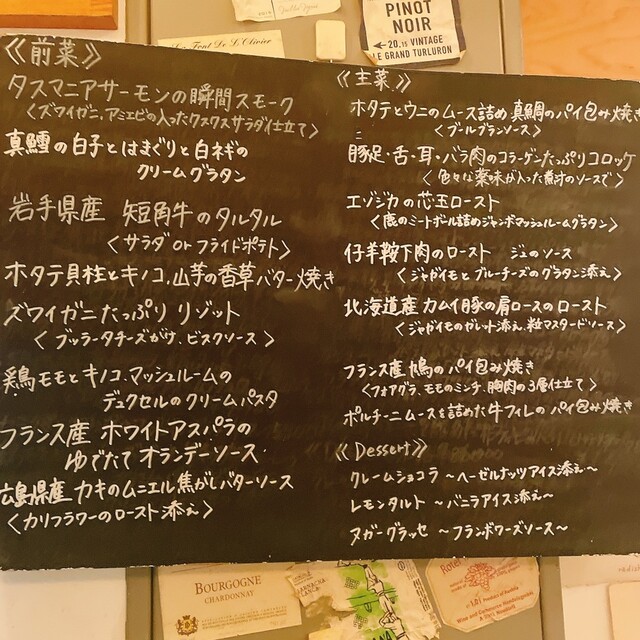 PINOT
NOIR
20,15 VINTAGE
LE GRAND TURLURON
《前菜》
タスマニアサーモンの瞬間スモーク
〈ズワイガニ、アミエビの入ったクスクスサラダ仕立て〉
真鱈の白子とはまぐりと白ネギの
クリームグラタン
岩手県産 短角牛のタルタル
〈サラダ or フライドポテト〉
ホタテ貝柱とキノコ、山芋の香草バター焼き
ズワイガニたっぷりリゾット
〈ブッラータチーズがけ、ビスクソース〉
鶏モモとキノコ、マッシュルームの
デュクセルのクリームパスタ
フランス産 ホワイトアスパラの
ゆでたて オランデーソース
広島県産 カキのムニエル焦がしバターソース
〈カリフラワーのロースト添え〉
《主菜》
ホタテとウニのムース詰め 真鯛のパイ包み焼き
〈ブールブランソース〉
豚足・舌・耳・バラ肉のコラーゲンたっぷりコロッケ
〈色々な薬味が入った煮汁のソースで〉
エゾジカの芯玉ロースト
〈鹿のミートボール詰めジャンボマッシュルームグラタン〉
仔羊鞍下肉のロースト ジュのソース
〈ジャガイモとブルーチーズのグラタン添え〉
北海道産 カムイ豚の肩ロースのロースト
〈ジャガイモのガレット添え、粒マスタードソース〉
フランス産 鳩のパイ包み焼き
〈フォアグラ、モモのミンチ、胸肉の3層仕立て〉
ポルチーニムースを詰めた牛フィレのパイ包み焼き
《Dessert》
クレームショコラ ～ヘーゼルナッツアイス添え～
レモンタルト ～バニラアイス添え～
ヌガーグラッセ ～フランボワーズソース～
BOURGOGNE
CHARDONNAY